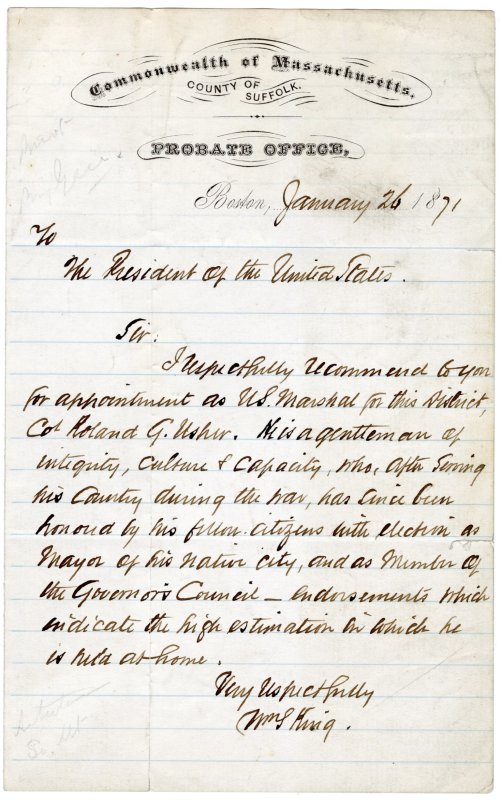 Commonwealth of Massachusetts.
COUNTY OF SUFFOLK.
PROBATE OFFICE,
Boston, January 26 1871
To
The President of the United States.
Sir:
I respectfully recommend to you
for appointment as U.S. Marshal for this District,
Col Roland G. Usher. He is a gentleman of
integrity, culture & capacity, who, after serving
his Country during the war, has since been
honored by his fellow-citizens with election as
Mayor of his native city, and as Member of
the Governor's Council — endorsements which
indicate the high estimation in which he
is held at home.
Very respectfully
Wm S King.